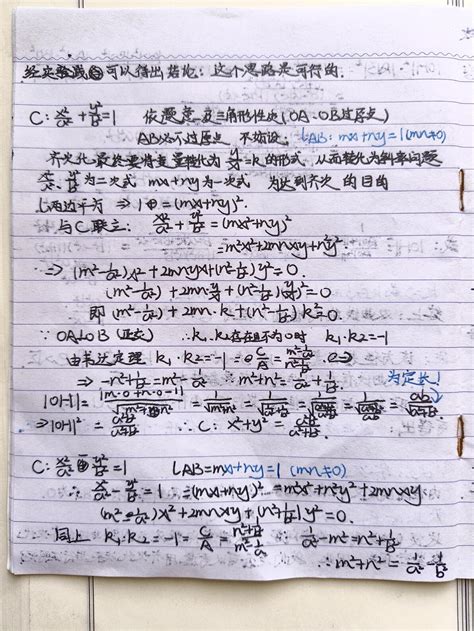 经实验践可以得出结论：这个思路是可行的.
C: x²/a² + y²/b² = 1 依题意及三角形性质(OA、OB过原点)
AB必不过原点 不妨设: l_AB: mx+ny=1(mn≠0)
齐次化最终要将变量转化为 y/x=k 的形式, 从而转化为斜率问题
x²/a²、y²/b² 为二次式 mx+ny为一次式 为达到齐次的目的
两边平方 ⇒ 1 = (mx+ny)²
与C联立: x²/a² + y²/b² = (mx+ny)²
= m²x²+2mnxy+n²y²
⇒ (m²-1/a²)x² + 2mnyx+(n²-1/b²)y²=0.
(m²-1/a²) + 2mn·y/x+(n²-1/b²)(y/x)²=0.
即 (m²-1/a²)+2mn·k+(n²-1/b²)k²=0.
∵ OA⊥OB (正交) ∴k₁、k₂存在且不为0时 k₁·k₂=-1
由韦达定理 k₁·k₂=-1= C/A = (m²-1/a²)/(n²-1/b²)
为定长!
⇒ -n²+1/b²=m²-1/a² ∴ m²+n²=1/a²+1/b².
|OH|= |m·0+n·0-1|/√(m²+n²) = 1/√(m²+n²) = 1/√(1/a²+1/b²) = = = ab/√(a²+b²)
⇒|OH|²= a²b²/(a²+b²) ∴ C: x²+y²= a²b²/(a²+b²)
C: x²/a² - y²/b² =1 l_AB=mx+ny=1 (mn≠0)
∴ x²/a² - y²/b² = 1 =(mx+ny)²=m²x²+n²y²+2mnxy
(m²-1/a²)x²+2mnxy+(n²+1/b²)y²=0.
同上 k₁·k₂=-1= C/A = (n²+1/b²)/(m²-1/a²) ∴ 1/a²-m²=n²+1/b²
∴ m²+n²= 1/a²-1/b²